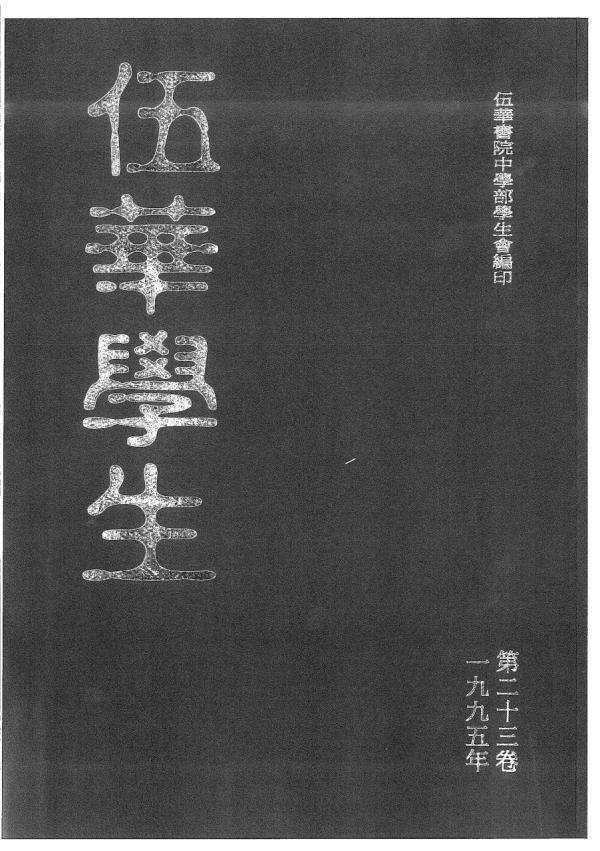 伍華書院中學部學生會編印
伍華學生
第二十三卷
一九九五年